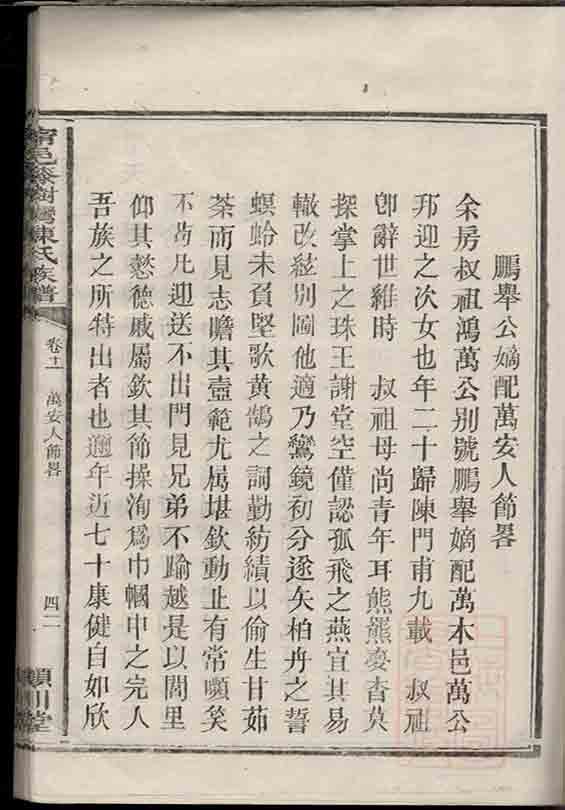 鵬舉公嫡配萬安人節畧
余房叔祖鴻萬公别號鵬舉嫡配萬本邑萬公
邦迎之次女也年二十歸陳門甫九載 叔祖
卽辭世維時 叔祖母尚青年耳熊羆夢杳莫
探掌上之珠王謝堂空僅認孤飛之燕宜其易
轍改絃别圖他適乃鸞鏡初分遂矢柏舟之誓
螟蛉未負堅歌黄鵠之詞勤紡績以偷生甘茹
荼而見志瞻其壼範尤属堪欽動止有常嚬笑
不苟凡迎送不出門見兄弟不踰越是以閭里
仰其懿德戚屬欽其節操洵爲巾幗中之完人
吾族之所特出者也邇年近七十康健自如欣
甯邑桼樹灣陳氏族譜
卷十一 萬安人節畧
四二
潁川堂